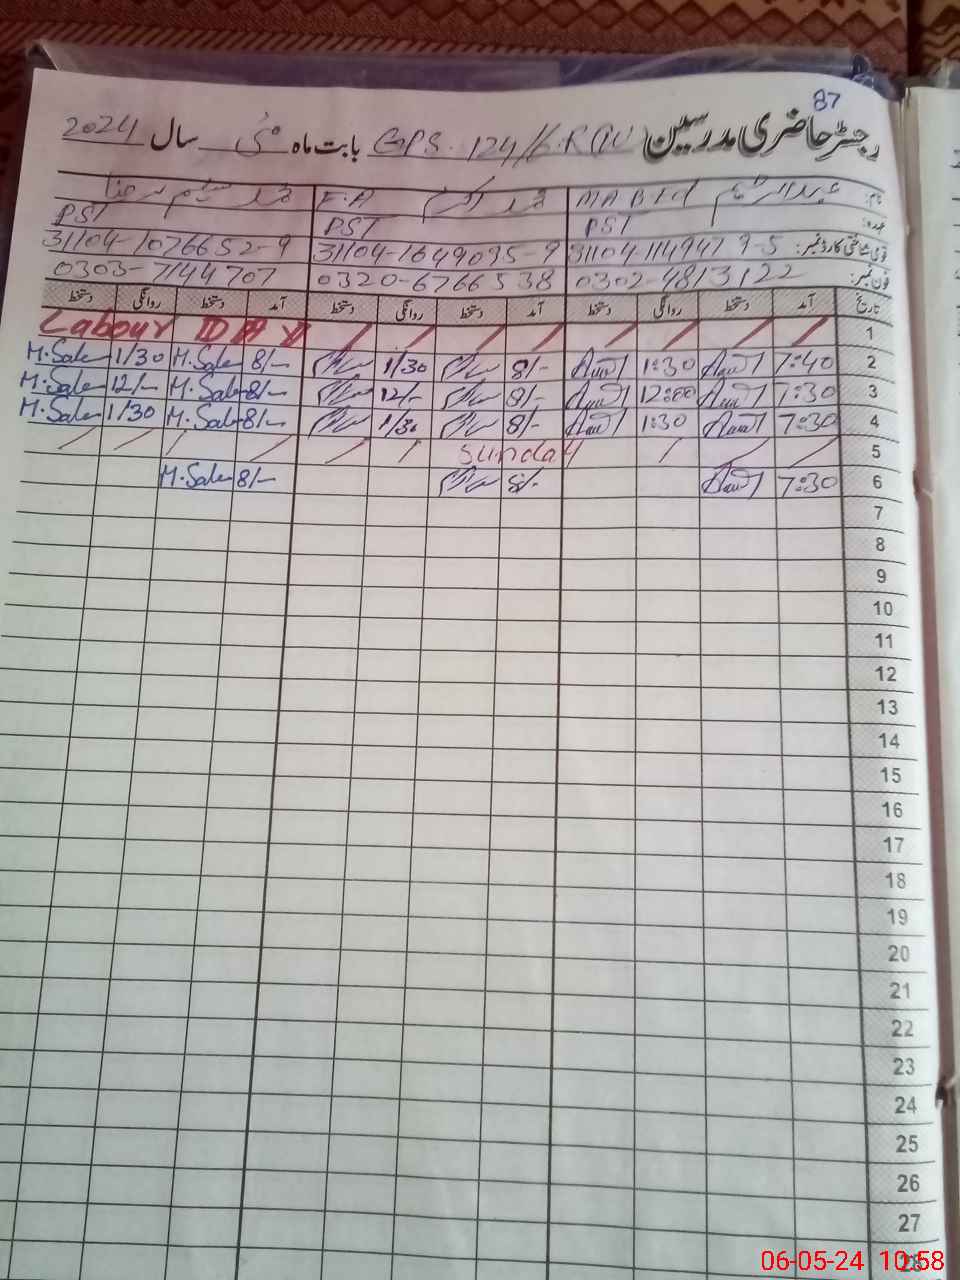 87
رجسٹر حاضری مدرسین GPS. 124/ بابت ماہ مئی سال 2024
نام: M A B.Ed محمد F.A محمد سلیم
عہدہ: PST PST PST
قومی شناختی کارڈ نمبر: 31104-1149479-5 31104-1649095-9 31104-1076652-9
فون نمبر: 0302-4813122 0320-6766538 0303-7144707
تاریخ آمد دستخط روانگی دستخط آمد دستخط روانگی دستخط آمد دستخط روانگی دستخط
1 Labour DAY
2 7:40 1:30 8/- 1/30 8/- M.Sale 1/30 M.Sale
3 7:30 12:00 8/- 12/- 8/- M.Sale 12/- M.Sale
4 7:30 1:30 8/- 1/30 8/- M.Sale 1/30 M.Sale
5 Sunday
6 7:30 8/- 8/- M.Sale
7
8
9
10
11
12
13
14
15
16
17
18
19
20
21
22
23
24
25
26
27
28
06-05-24 10:58